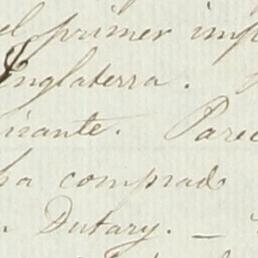 el primer imp
Inglaterra.
isante. Parec
ha comprad
n Dutary. —